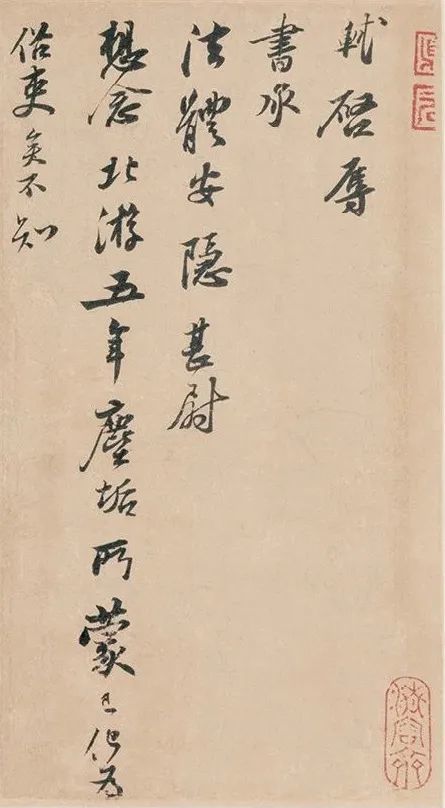 軾啓辱
書承
法體安隱甚尉
想念北游五年塵垢所蒙已化為
俗吏矣不知